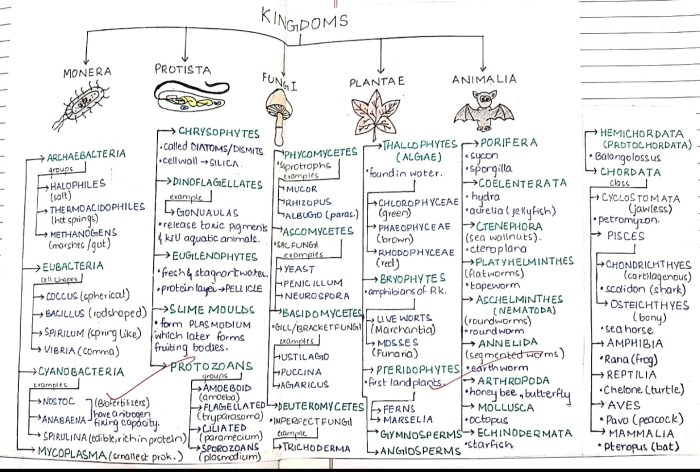 KINGDOMS
MONERA
ARCHAEBACTERIA
groups
HALOPHILES
(salt)
THERMOACIDOPHILES
(hot springs)
METHANOGENS
(marshes/gut)
EUBACTERIA
cell shapes
COCCUS (spherical)
BACILLUS (rodshaped)
SPIRILUM (spring like)
VIBRIA (comma)
CYANOBACTERIA
examples
NOSTOC
ANABAENA
(Biofertilizers)
have a nitrogen
fixing capacity.
SPIRULINA (edible, rich in protein)
MYCOPLASMA (smallest prok.)
PROTISTA
CHRYSOPHYTES
• called DIATOMS/DISMITS
• cell wall → SILICA.
DINOFLAGELLATES
example
GONUAULAS
• release toxic pigments
& kill aquatic animals.
EUGILENOPHYTES
• fresh & stagnant water
• protein layer → PELLICLE
SLIME MOULDS
• form PLASMODIUM
which later forms
fruiting bodies.
PROTOZOANS
groups
AMOEBOID
(amoeba)
FLAGELLATED
(tryparasoma)
CILIATED
(paramecium)
SPOROZOANS
(plasmodium)
FUNGI
PHYCOMYCETES
• saprotrophs
examples
MUCOR
RHIZOPUS
ALBUGIO (paras.)
ASCOMYCETES
• SAC FUNGI
examples
YEAST
PENICILLUM
NEUROSPORA
BASIDOMYCETES
• GILL/BRACKET FUNGI
examples
USTILAGIO
PUCCINA
AGARICUS
DEUTEROMYCETES
• IMPERFECT FUNGI
example
TRICHODERMA
PLANTAE
THALLOPHYTES
(ALGAE)
found in water.
CHLOROPHYCEAE
(green)
PHAEOPHYCEAE
(brown)
RHODOPHYCEAE
(red)
BRYOPHYTES
• amphibians of P.k.
LIVE WORTS
(Marchantia)
MOSSES
(Funaria)
PTERIDOPHYTES
• first land plants.
FERNS
MARSELIA
GYMNOSPERMS
ANGIOSPERMS
ANIMALIA
PORIFERA
• sycon
• spongilla
COELENTERATA
• hydra
• aurelia (jellyfish)
CTENEPHORA
(sea wallnuts).
• cteroplana
PLATYHELMINTHES
(flatworms)
• tapeworm
ASCHELMINTHES
(NEMATODA)
(roundworms)
• roundworm
ANNELIDA
(segmented worms)
• earthworm
ARTHROPODA
• honey bee, butterfly
MOLLUSCA
• octopus
ECHINODERMATA
• starfish
HEMICHORDATA
(PROTOCHORDATA)
• Balanglossus
CHORDATA
class
CYCLOSTOMATA
(jawless)
• petromyzon.
PISCES
CHONDRICHTHYES
(cartilagenous)
• scolidon (shark)
OSTEICHTHYES
(bony)
• sea horse
AMPHIBIA
• Rana (frog)
REPTILIA
• Chelone (turtle)
AVES
• Pavo (peacock)
MAMMALIA
• Pteropus (bat)